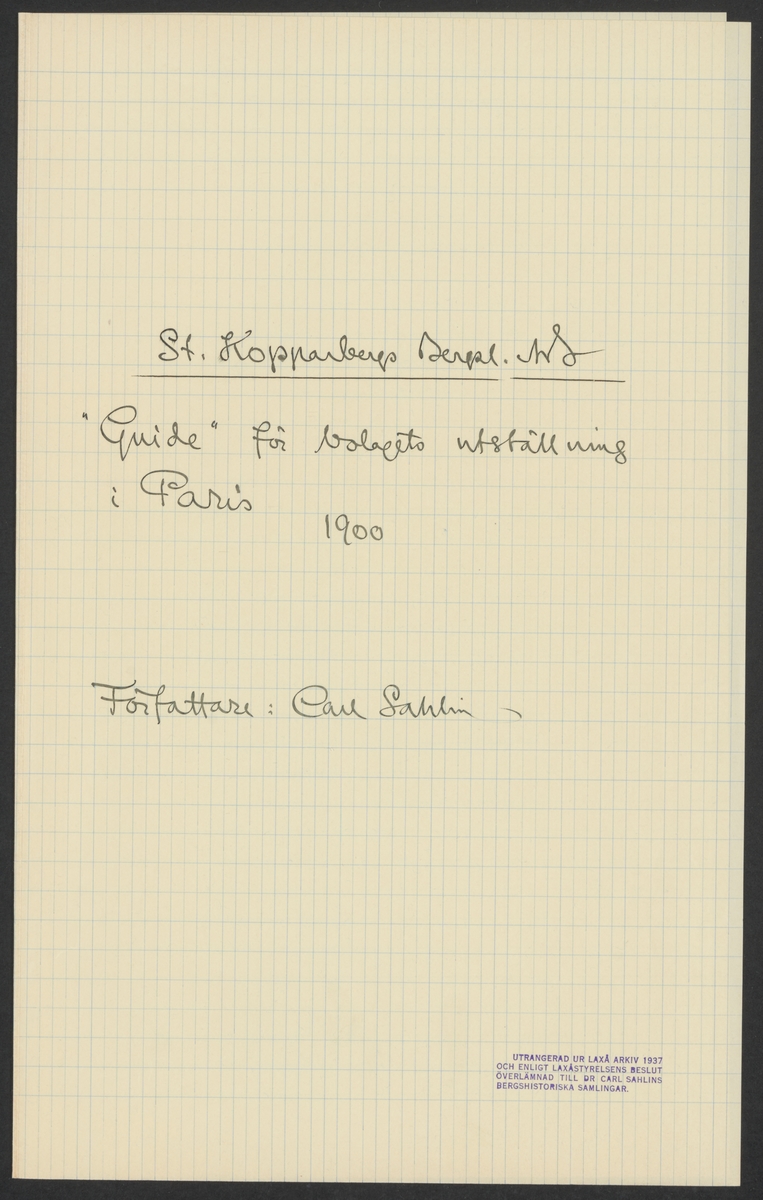 St. Kopparbergs Bergsl. AB
"Guide" för bolagets utställning
i Paris
1900
Författare: Carl Sahlin
UTRANGERAD UR LAXÅ ARKIV 1937
OCH ENLIGT LAXÅSTYRELSENS BESLUT
ÖVERLÄMNAD TILL DR CARL SAHLINS
BERGSHISTORISKA SAMLINGAR.